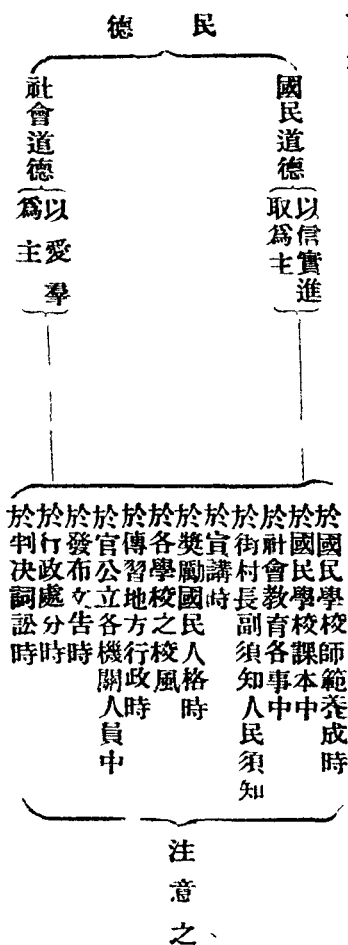 民德
國民道德
以信實進
取為主
社會道德
以愛羣
為主
於國民學校師範養成時
於國民學校課本中
於社會教育各事中
於街村長副須知人民須知
於宣講時
於獎勵國民人格時
於各學校之校風
於傳習地方行政時
於官公立各機關人員中
於發布文告時
於行政處分時
於判決詞訟時
注意之